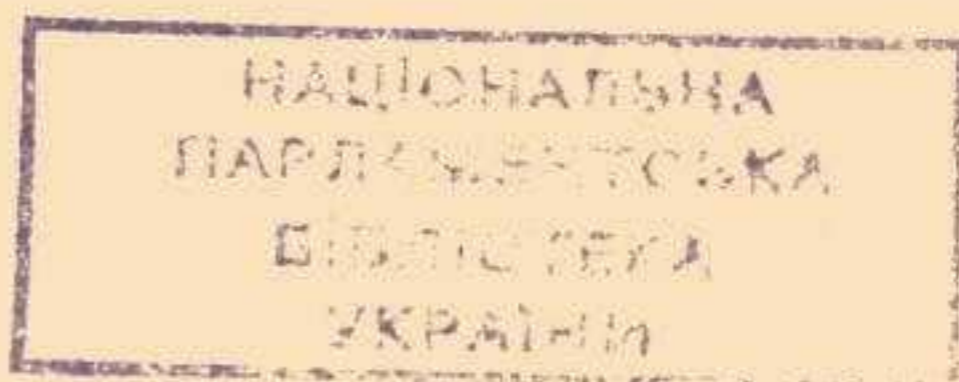 НАЦІОНАЛЬНА
ПАРЛАМЕНТСЬКА
БІБЛІОТЕКА
УКРАЇНИ